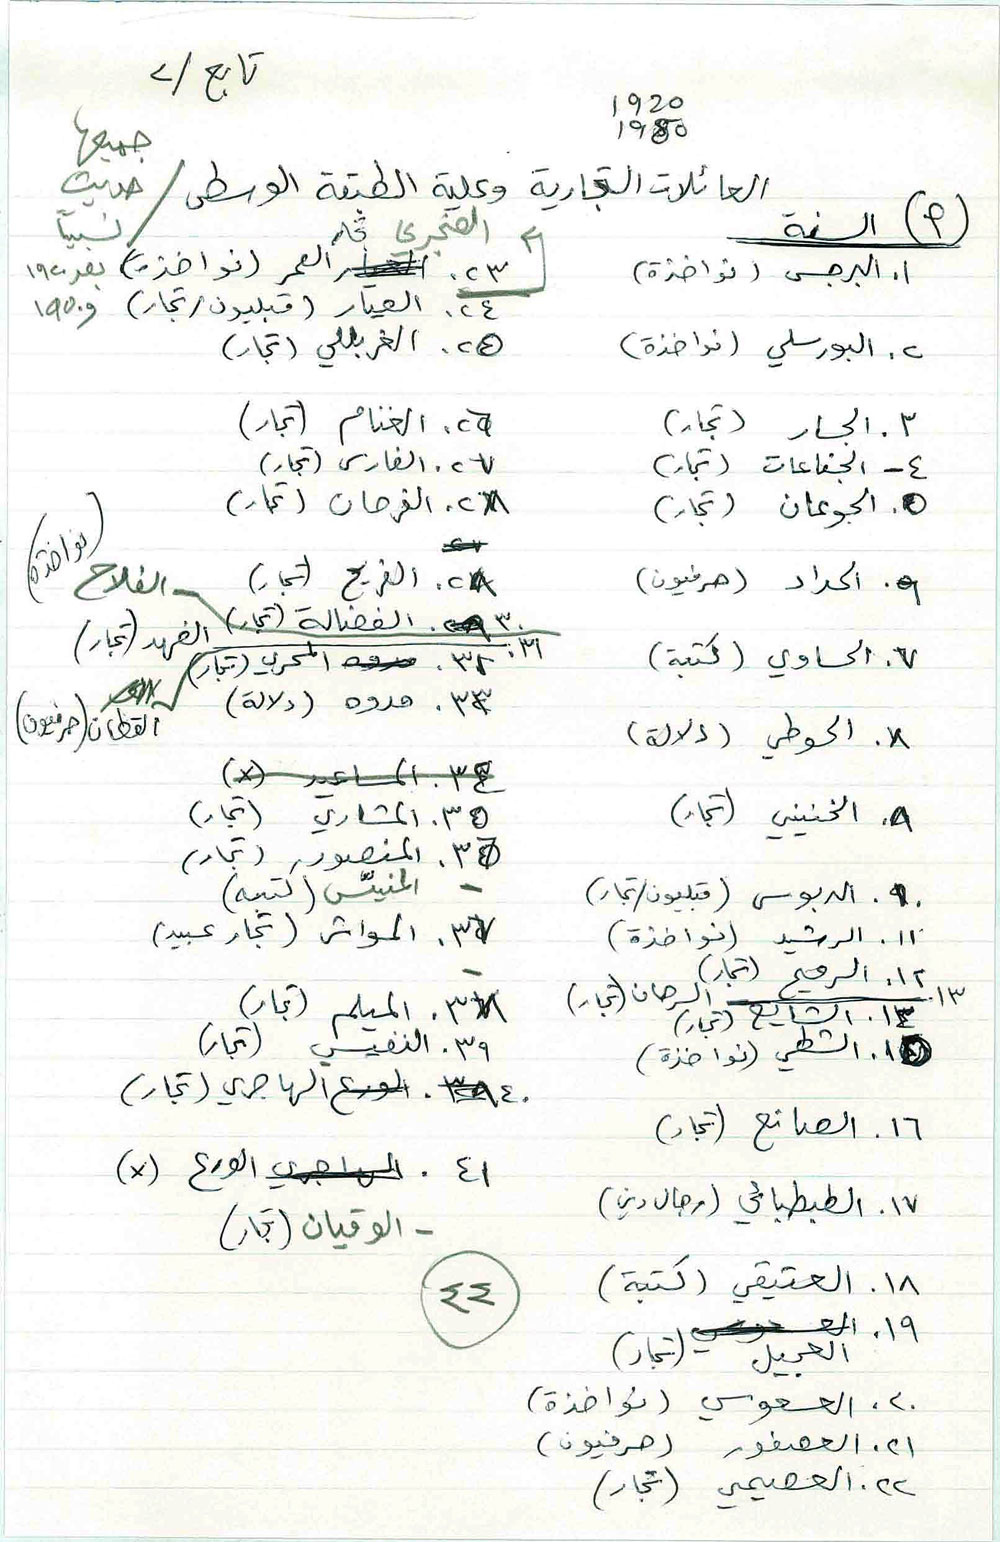 تابع /٢
1920
1950
العائلات التجارية وعلية الطبقة الوسطى /
جميعها
حديث
نسبياً
بعد ١٩٢٠
و ١٩٥٠
(٢) السنة
١. البرجس (نواخذة)
٢. البورسلي (نواخذة)
٣. الجسار (تجار)
٤- الجفاعات (تجار)
٥. الجوعان (تجار)
٦. الحداد (حرفيون)
٧. الحساوي (كتبة)
٨. الحوطي (دلالة)
٩. الخنيني (تجار)
١٠. الدبوس (قبليون/تجار)
١١. الرشيد (نواخذة)
١٢. الرميح (تجار)
١٣ السرحان (تجار)
١٤. الشايع (تجار)
١٥. الشطي (نواخذة)
١٦. الصانع (تجار)
١٧. الطبطبائي (رجال دين)
١٨. العتيقي (كتبة)
١٩.
العجيل (تجار)
٢٠. العسعوسي (نواخذة)
٢١. العصفور (حرفيون)
٢٢. العصيمي (تجار)
العنجري تجار
٢٣. العمر (نواخذة)
٢٤. العيار (قبليون/تجار)
٢٥. الغربللي (تجار)
٢٦. الغنام (تجار)
٢٧. الفارس (تجار)
٢٨. الفرحان (تجار)
٢٨. الفريح (تجار)
الفلاح (نواخذة)
٣٠. الفضالة (تجار)
٣١. الفهد (تجار)
القطان (حرفيون)
٣٢. المحري (تجار)
٣٣. مدوه (دلالة)
٣٤. المساعيد (x)
٣٥. المشاري (تجار)
٣٦. المنصور (تجار)
- المنيّس (كتبه)
٣٧. المواش (تجار عبيد)
-
٣٨. الميلم (تجار)
٣٩. النفيسي (تجار)
٤٠. الهاجري (تجار)
٤١. الورع (x)
- الوقيان (تجار)
٤٤